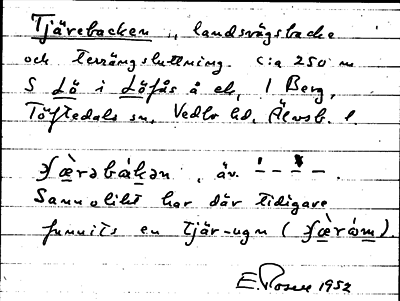 Tjärebacken, landsvägsbacke
och terrängsluttning. C:a 250 m
S Lö i Löfås å ek, 1 Berg,
Töftedals sn, Vedbo hd, Älvsb. l.
færəbàkən, äv.
Sannolikt har där tidigare
funnits en tjär-ugn (
E. Rosell 1952